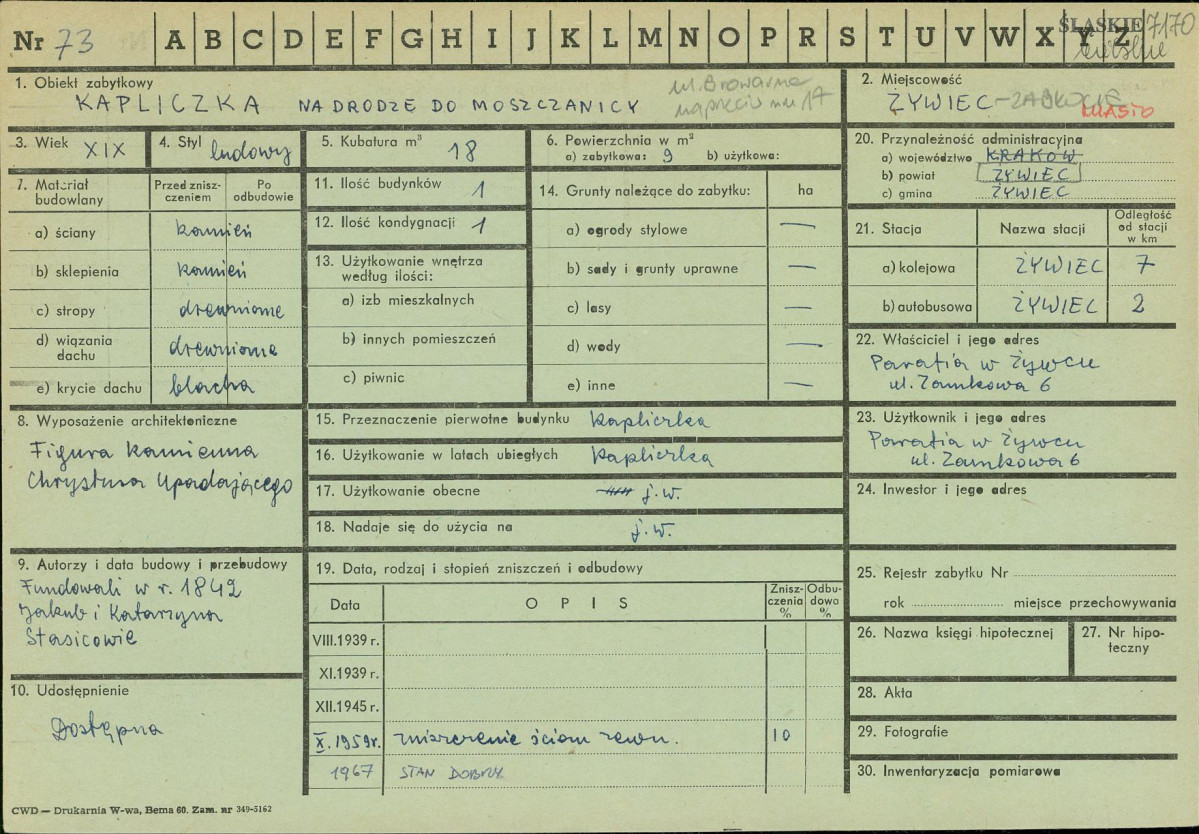 Nr 73
A B C D E F G H I J K L M N O P R S T U V W X Y Z
ŚLĄSKIE 7/70
bielskie
1. Obiekt zabytkowy
KAPLICZKA NA DRODZE DO MOSZCZANICY
ul. Browarna
naprzeciw nru 17
2. Miejscowość
ŻYWIEC - ZABŁOCIE
MIASTO
3. Wiek XIX
4. Styl ludowy
5. Kubatura m³ 18
6. Powierzchnia w m²
a) zabytkowa: 9 b) użytkowa:
20. Przynależność administracyjna
a) województwo KRAKÓW
b) powiat ŻYWIEC
c) gmina ŻYWIEC
7. Materiał budowlany
Przed zniszczeniem
Po odbudowie
a) ściany kamień
b) sklepienia kamień
c) stropy drewniane
d) wiązania dachu drewniane
e) krycie dachu blacha
11. Ilość budynków 1
12. Ilość kondygnacji 1
13. Użytkowanie wnętrza według ilości:
a) izb mieszkalnych
b) innych pomieszczeń
c) piwnic
14. Grunty należące do zabytku: ha
a) ogrody stylowe —
b) sady i grunty uprawne —
c) lasy —
d) wody —
e) inne —
21. Stacja Nazwa stacji Odległość od stacji w km
a) kolejowa ŻYWIEC 7
b) autobusowa ŻYWIEC 2
22. Właściciel i jego adres
Parafia w Żywcu
ul. Zamkowa 6
8. Wyposażenie architektoniczne
Figura kamienna
Chrystusa Upadającego
15. Przeznaczenie pierwotne budynku kapliczka
16. Użytkowanie w latach ubiegłych kapliczka
17. Użytkowanie obecne j.w.
18. Nadaje się do użycia na j.w.
23. Użytkownik i jego adres
Parafia w Żywcu
ul. Zamkowa 6
24. Inwestor i jego adres
9. Autorzy i data budowy i przebudowy
Fundowali w r. 1842
Jakub i Katarzyna
Stasicowie
19. Data, rodzaj i stopień zniszczeń i odbudowy
Data OPIS Zniszczenia % Odbudowa %
VIII.1939 r.
XI.1939 r.
XII.1945 r.
X.1959r. zniszczenie ścian zewn. 10
1967 STAN DOBRY
25. Rejestr zabytku Nr
rok miejsce przechowywania
26. Nazwa księgi hipotecznej
27. Nr hipoteczny
10. Udostępnienie
Dostępna
28. Akta
29. Fotografie
30. Inwentaryzacja pomiarowa
CWD — Drukarnia W-wa, Bema 60. Zam. nr 349-5162